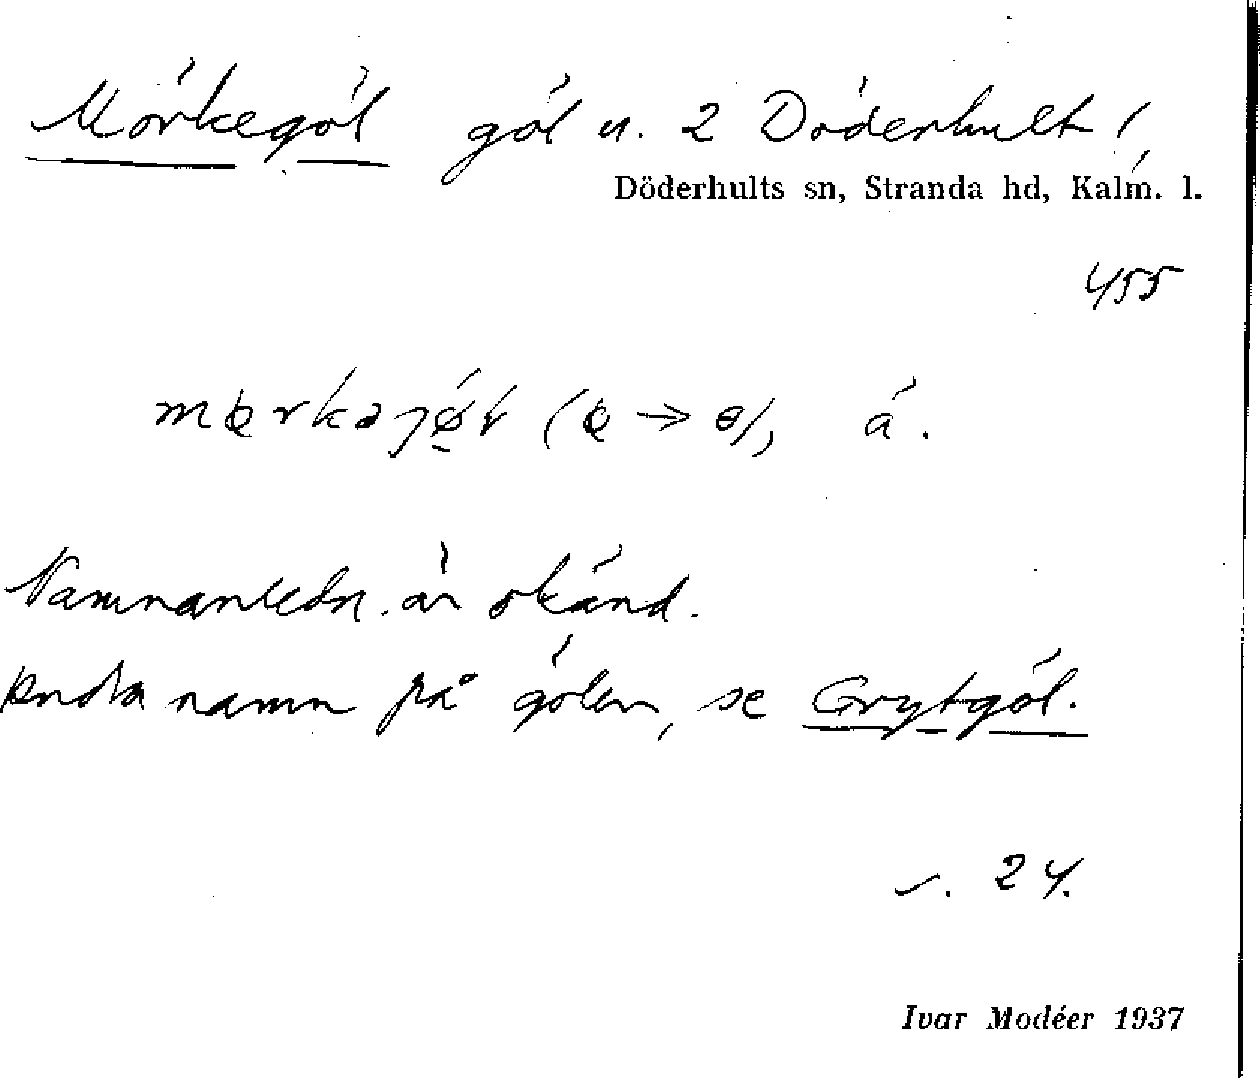 Mörkegöl göl u. 2 Döderhult 1,
Döderhults sn, Stranda hd, Kalm. l.
455
á.
Namnanledn. är okänd.
andra namn på gölen, se Grytgöl.
s. 24.
Ivar Modéer 1937